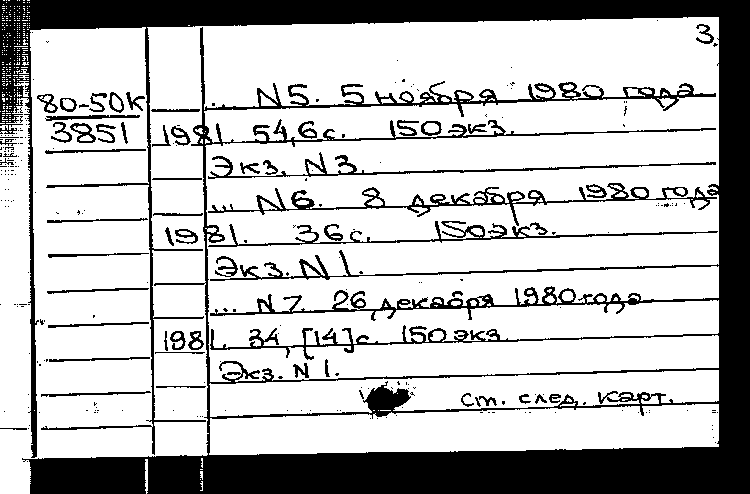 3.
80-50К
3851
... N5. 5 ноября 1980 года
1981. 54,6с. 150 экз.
Экз. N3.
... N6. 8 декабря 1980 года
1981. 36с. 150экз.
Экз. N1.
... N7. 26 декабря 1980 года
1981. 34, [14]с. 150 экз.
Экз. N1.
Ст. след. карт.